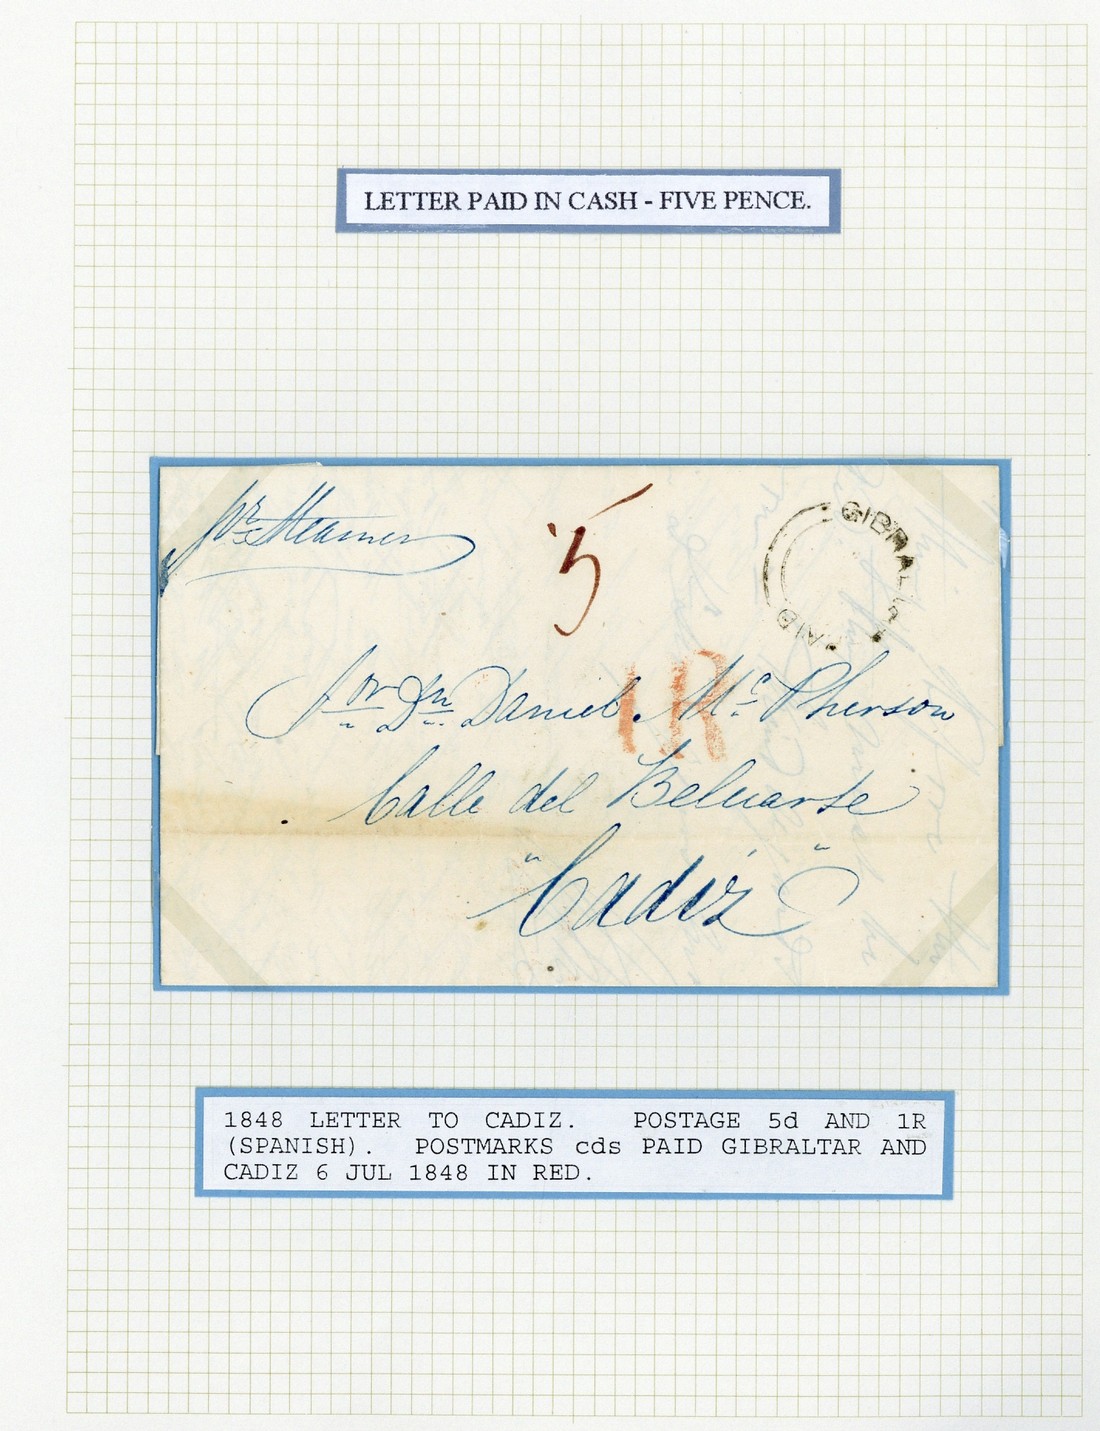 LETTER PAID IN CASH - FIVE PENCE.
pr Steamer
5
GIBRAL
PAID
1R
Sor Dn Daniel Mc Pherson
Calle del Beluarte
"Cadiz"
1848 LETTER TO CADIZ. POSTAGE 5d AND 1R
(SPANISH). POSTMARKS cds PAID GIBRALTAR AND
CADIZ 6 JUL 1848 IN RED.